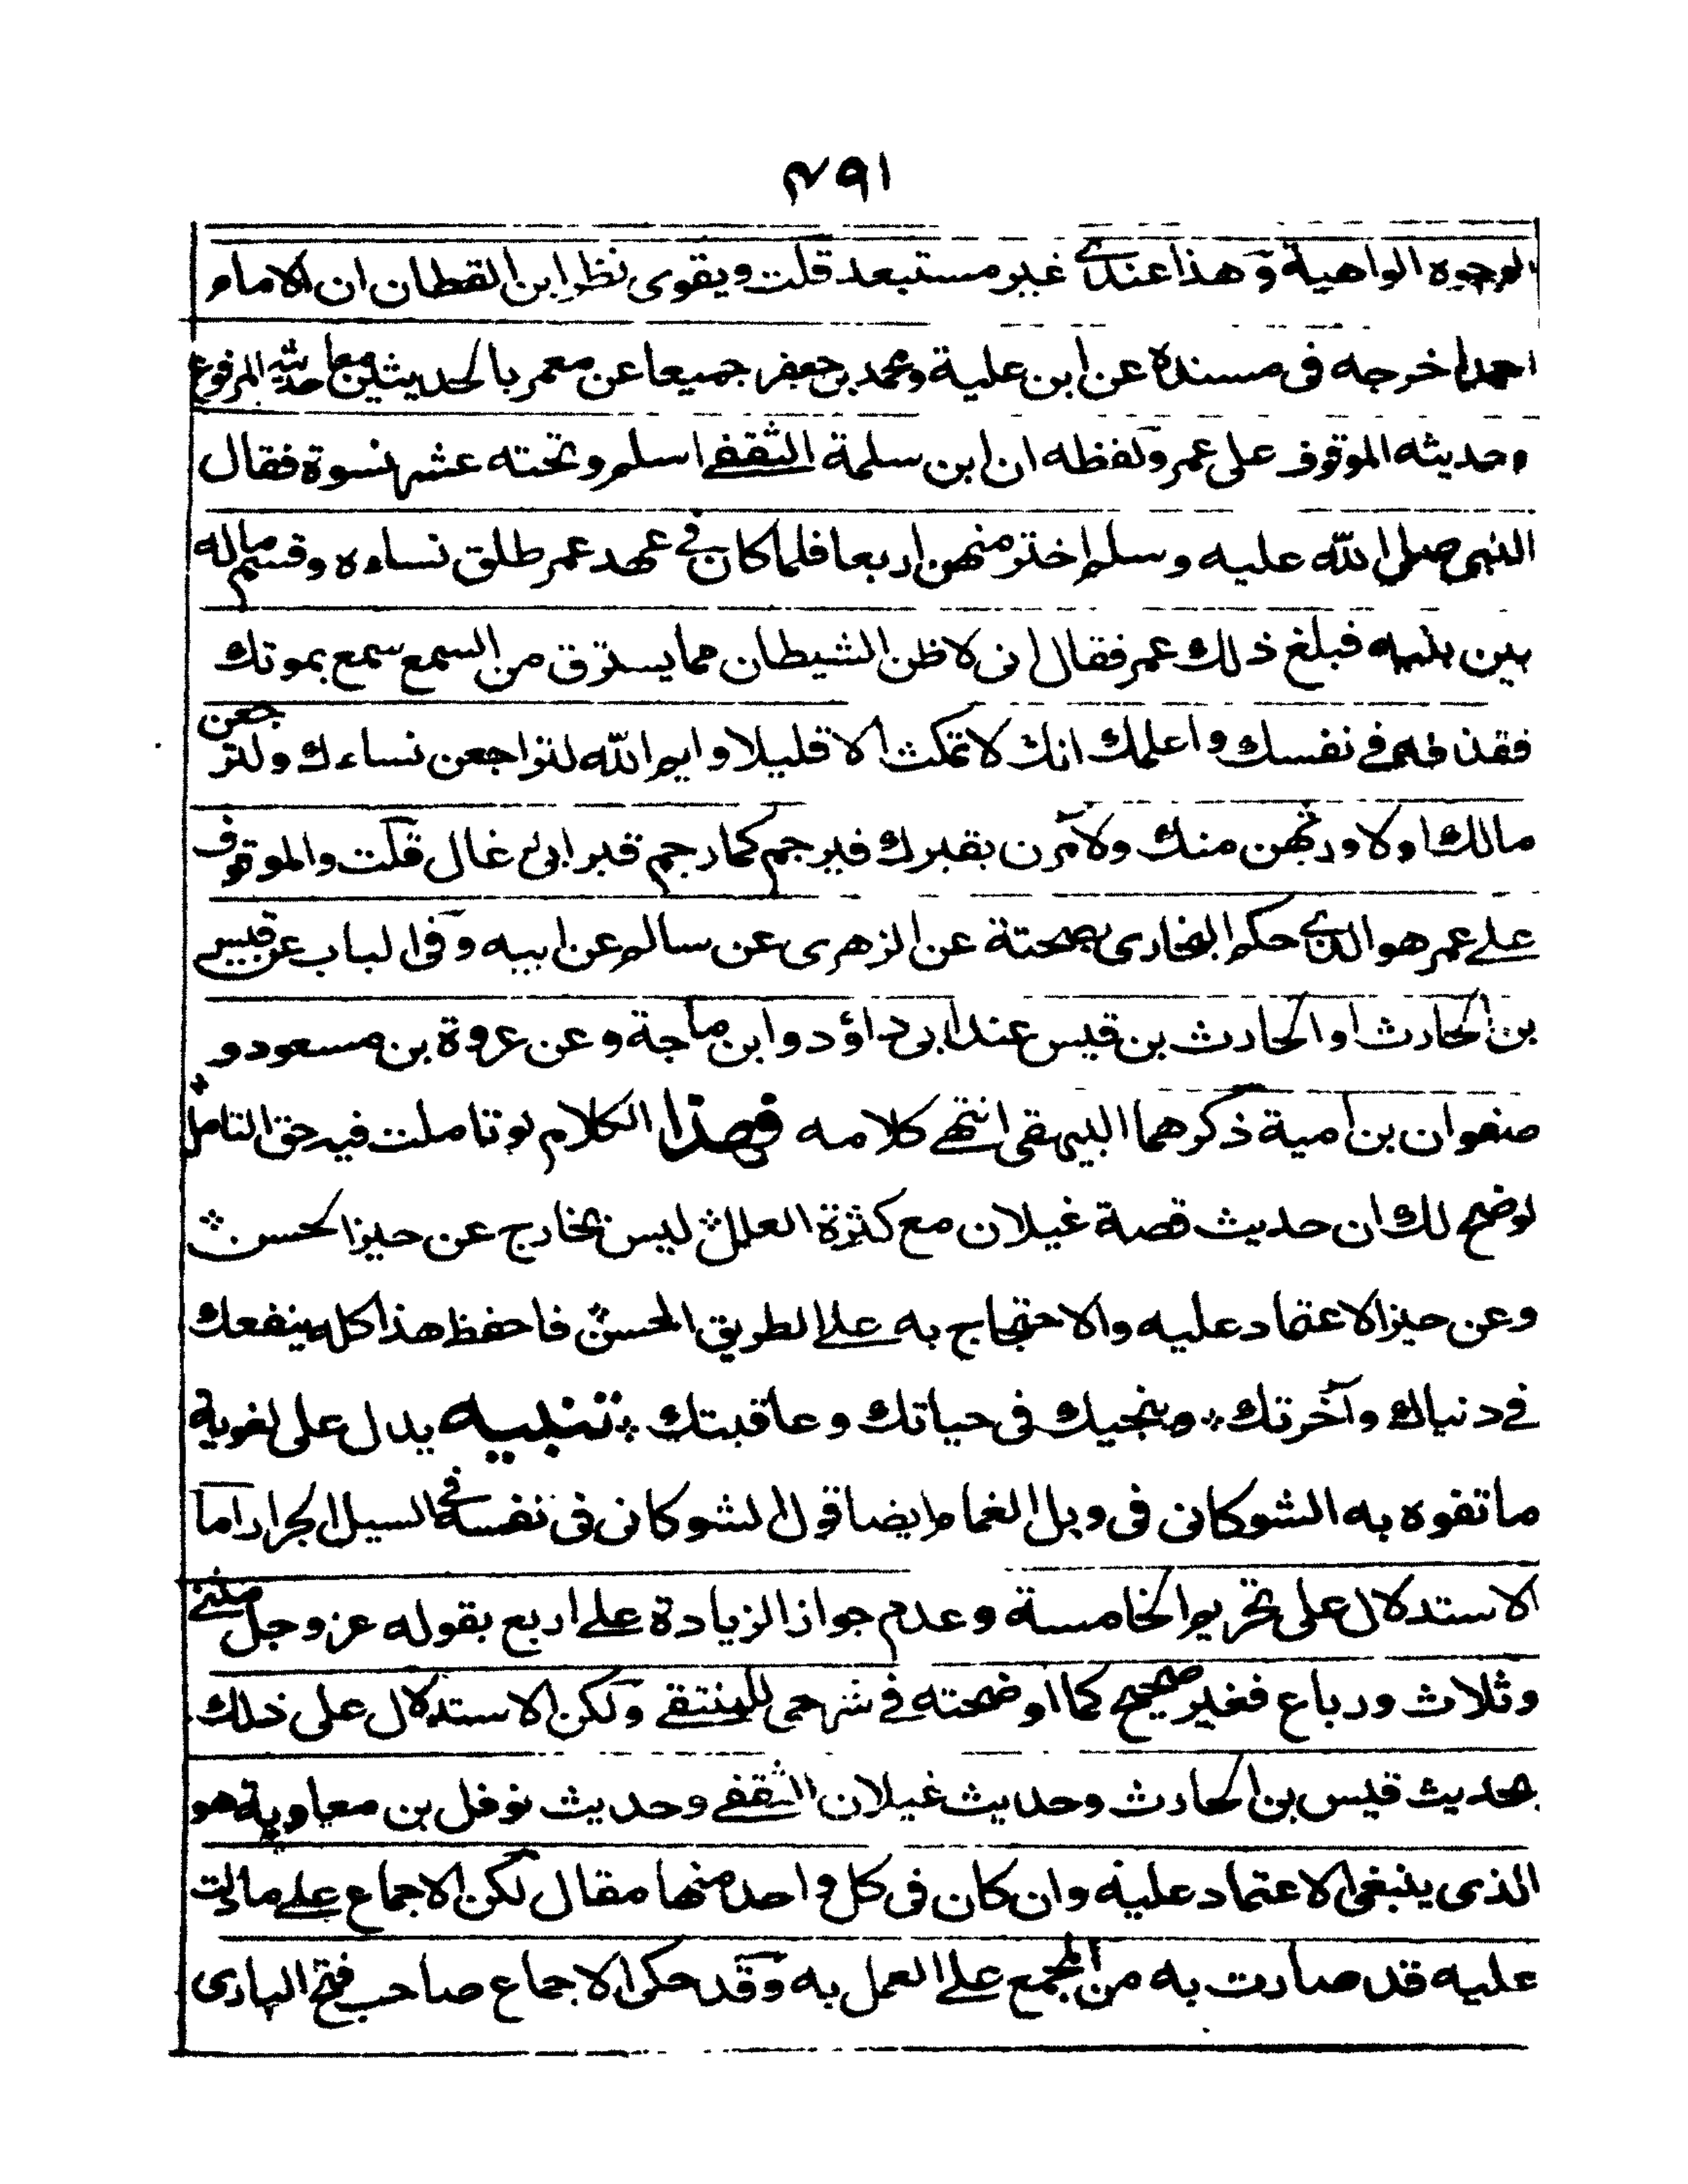 ٤٩١
الوجوه الواهية وهذا عندي غير مستبعد قلت ويقوى نظر ابن القطان ان الامام
احمد اخرجه فى مسنده عن ابن علية ومحمد بن جعفر جميعا عن معمر بالحديثين معا حديثه المرفوع
وحديثه الموقوف على عمر ولفظه ان ابن سلمة الثقفے اسلم وتحته عشر نسوة فقال
النبى صلى الله عليه وسلم اختر منهن اربعا فلما كان في عهد عمر طلق نساءه وقسم ماله
بين بنيه فبلغ ذلك عمر فقال انى لاظن الشيطان مما يسترق من السمع سمع بموتك
فقذفه فے نفسك واعلمك انك لا تمكث الا قليلا وايم الله لتراجعن نساءك ولترجعن
مالك او لاورثهن منك ولآمرن بقبرك فيرجم كما رجم قبر ابى رغال قلت والموقوف
علے عمر هو الذي حكم البخارى بصحته عن الزهرى عن سالم عن ابيه وفى الباب عن قيس
بن الحارث او الحارث بن قيس عند ابى داؤد وابن ماجة وعن عروة بن مسعود و
صفوان بن امية ذكرهما البيهقى انتهے كلامه فهذا الكلام لو تاملت فيه حق التامل
لوضح لك ان حديث قصة غيلان مع كثرة العلل ليس بخارج عن حيز الحسن
وعن حيز الاعتماد عليه والاحتجاج به علے الطريق الحسن فاحفظ هذا كله ينفعك
فے دنياك وآخرتك وينجيك فى حياتك وعاقبتك تنبيه يدل على لغوية
ما تفوه به الشوكانى فى وبل الغمام ايضا قول الشوكانى فى نفسه فے السيل الجرار اما
الاستدلال على تحريم الخامسة وعدم جواز الزيادة علے اربع بقوله عز وجل مثنے
وثلاث ورباع فغير صحيح كما اوضحته فے شرحى للمنتقے ولكن الاستدلال على ذلك
بحديث قيس بن الحارث وحديث غيلان الثقفے وحديث نوفل بن معاوية هو
الذى ينبغى الاعتماد عليه وان كان فى كل واحد منها مقال لكن الاجماع علے ما دلت
عليه قد صارت به من المجمع علے العمل به وقد حكى الاجماع صاحب فتح البارى